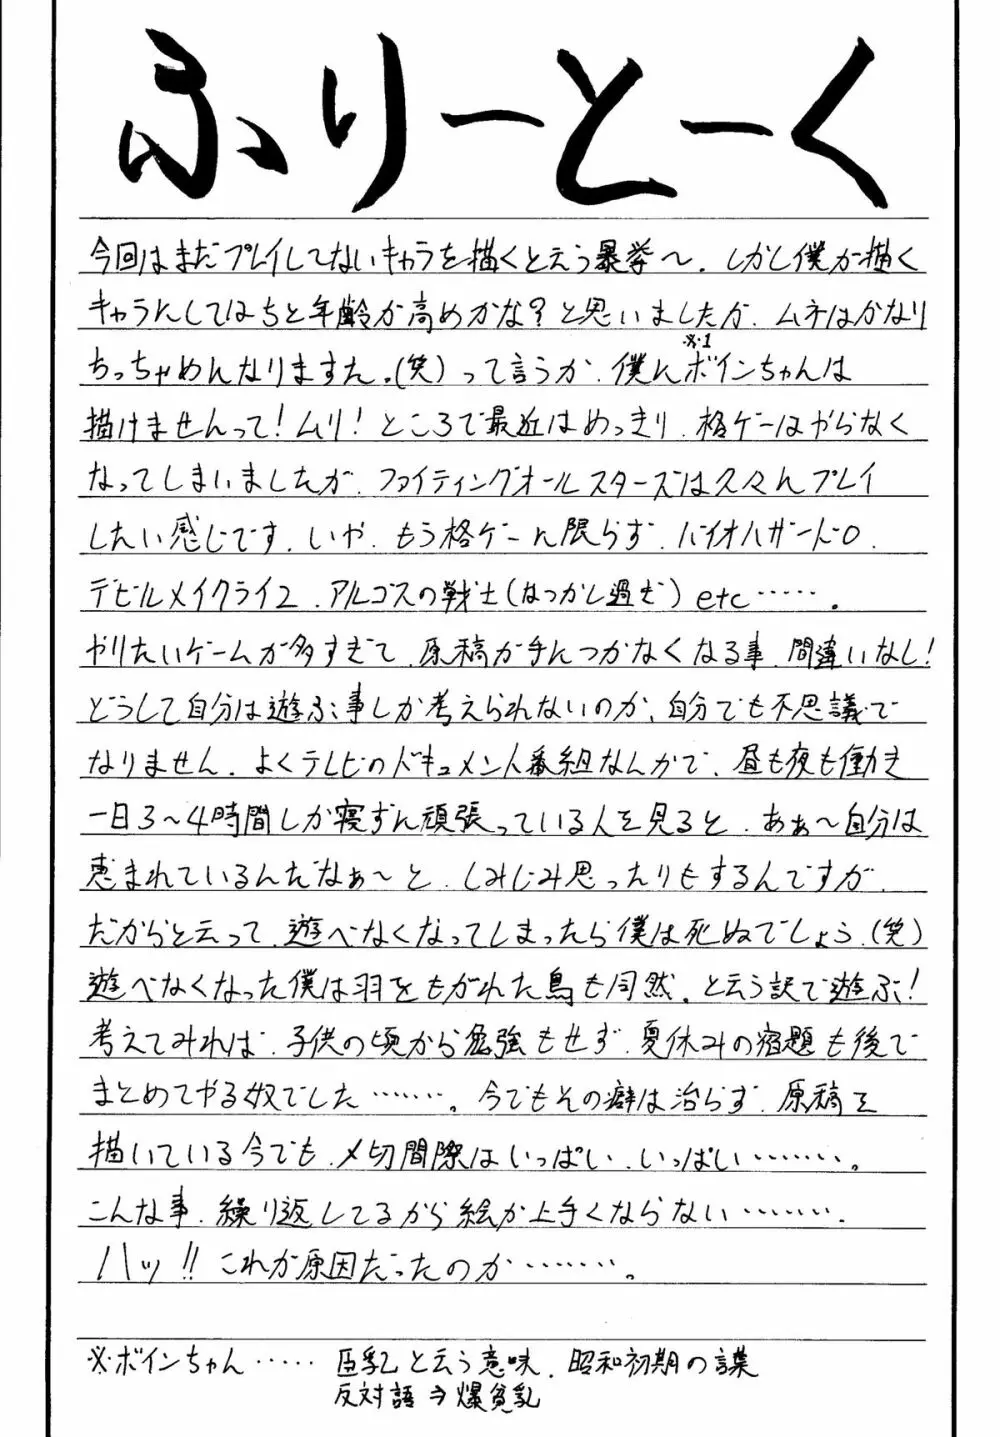 ふりーとーく
今回はまだプレイしてないキャラを描くと云う暴挙〜。しかし僕が描く
キャラにしてはちと年齢が高めかな?と思いましたが、ムネはかなり
ちっちゃめになりますた。(笑)って言うか、僕にボインちゃんは
※・1
描けませんって!ムリ!ところで最近はめっきり、格ゲーはやらなく
なってしまいましたが、ファイティングオールスターズは久々にプレイ
したい感じです。いや、もう格ゲーに限らず、バイオハザード0、
デビルメイクライ2、アルゴスの戦士(なつかし過ぎ)etc……。
やりたいゲームが多すぎて、原稿が手につかなくなる事、間違いなし!
どうして自分は遊ぶ事しか考えられないのか、自分でも不思議で
なりません。よくテレビのドキュメント番組なんかで、昼も夜も働き
一日3〜4時間しか寝ずに頑張っている人を見ると、あぁ〜自分は
恵まれているんだなぁ〜と、しみじみ思ったりもするんですが、
だからと云って、遊べなくなってしまったら僕は死ぬでしょう。(笑)
遊べなくなった僕は羽をもがれた鳥も同然。と云う訳で遊ぶ!
考えてみれば、子供の頃から勉強もせず、夏休みの宿題も後で
まとめてやる奴でした………。今でもその癖は治らず、原稿を
描いている今でも、〆切間際はいっぱい、いっぱい………。
こんな事、繰り返してるから絵が上手くならない………。
ハッ!!これが原因だったのか………。
※・ボインちゃん…… 巨乳と云う意味。昭和初期の言葉
反対語⇒爆貧乳